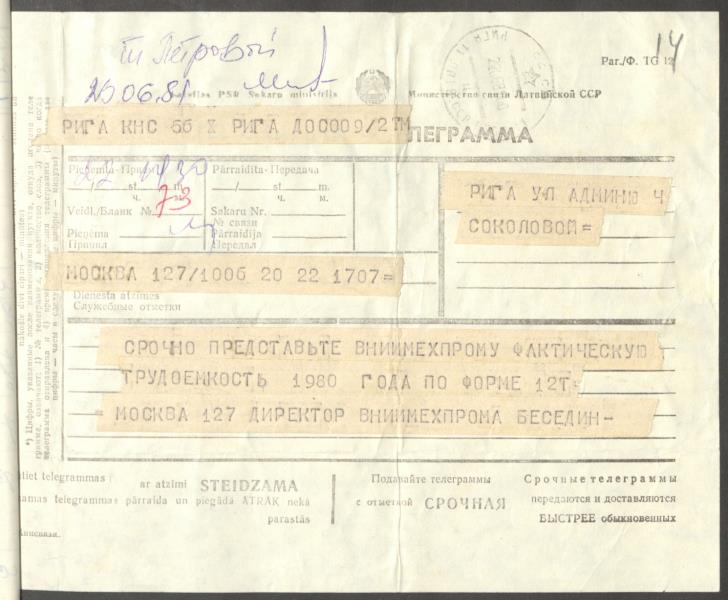 тт Петровой
25.06.81
Раг./Ф. TG 12
14
PSR Sakaru ministrija
Министерство связи Латвийской ССР
РИГА КНС 56 X РИГА ДОС009/2ТМ
ЛЕГРАММА
22 1930
Pieņemta-Приём
Pārraidīta-Передача
st. m.
st. m.
ч. м.
ч. м.
Veidl./Бланк № 73
Sakaru Nr.
№ связи
Pieņēma
Pārraidīja
Принял
Передал
РИГА УЛ АДМИНЮ Ч
СОКОЛОВОЙ=
МОСКВА 127/1006 20 22 1707=
Dienesta atzīmes
Служебные отметки
СРОЧНО ПРЕДСТАВЬТЕ ВНИИМЕХПРОМУ ФАКТИЧЕСКУЮ
ТРУДОЕМКОСТЬ 1980 ГОДА ПО ФОРМЕ 12Т-
МОСКВА 127 ДИРЕКТОР ВНИИМЕХПРОМА БЕСЕДИН-
telegrammas ar atzīmi STEIDZAMA
telegrammas pārraida un piegādā ĀTRĀK nekā
parastās
Подавайте телеграммы
с отметкой СРОЧНАЯ
Срочные телеграммы
передаются и доставляются
БЫСТРЕЕ обыкновенных